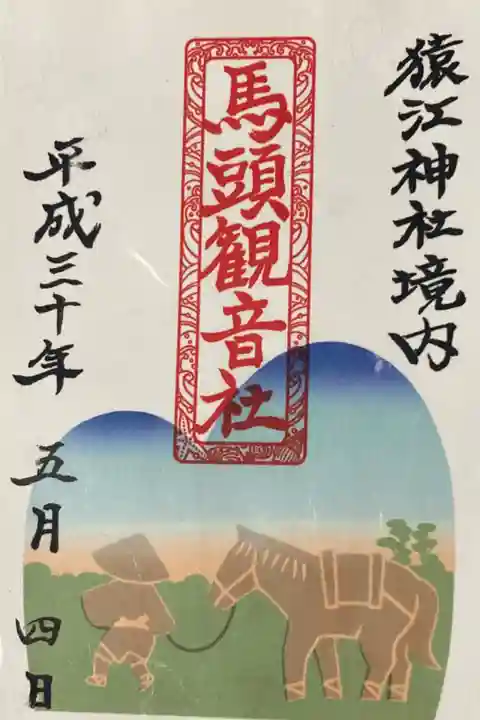 猿江神社境内
馬頭観音社
平成三十年 五月 四日